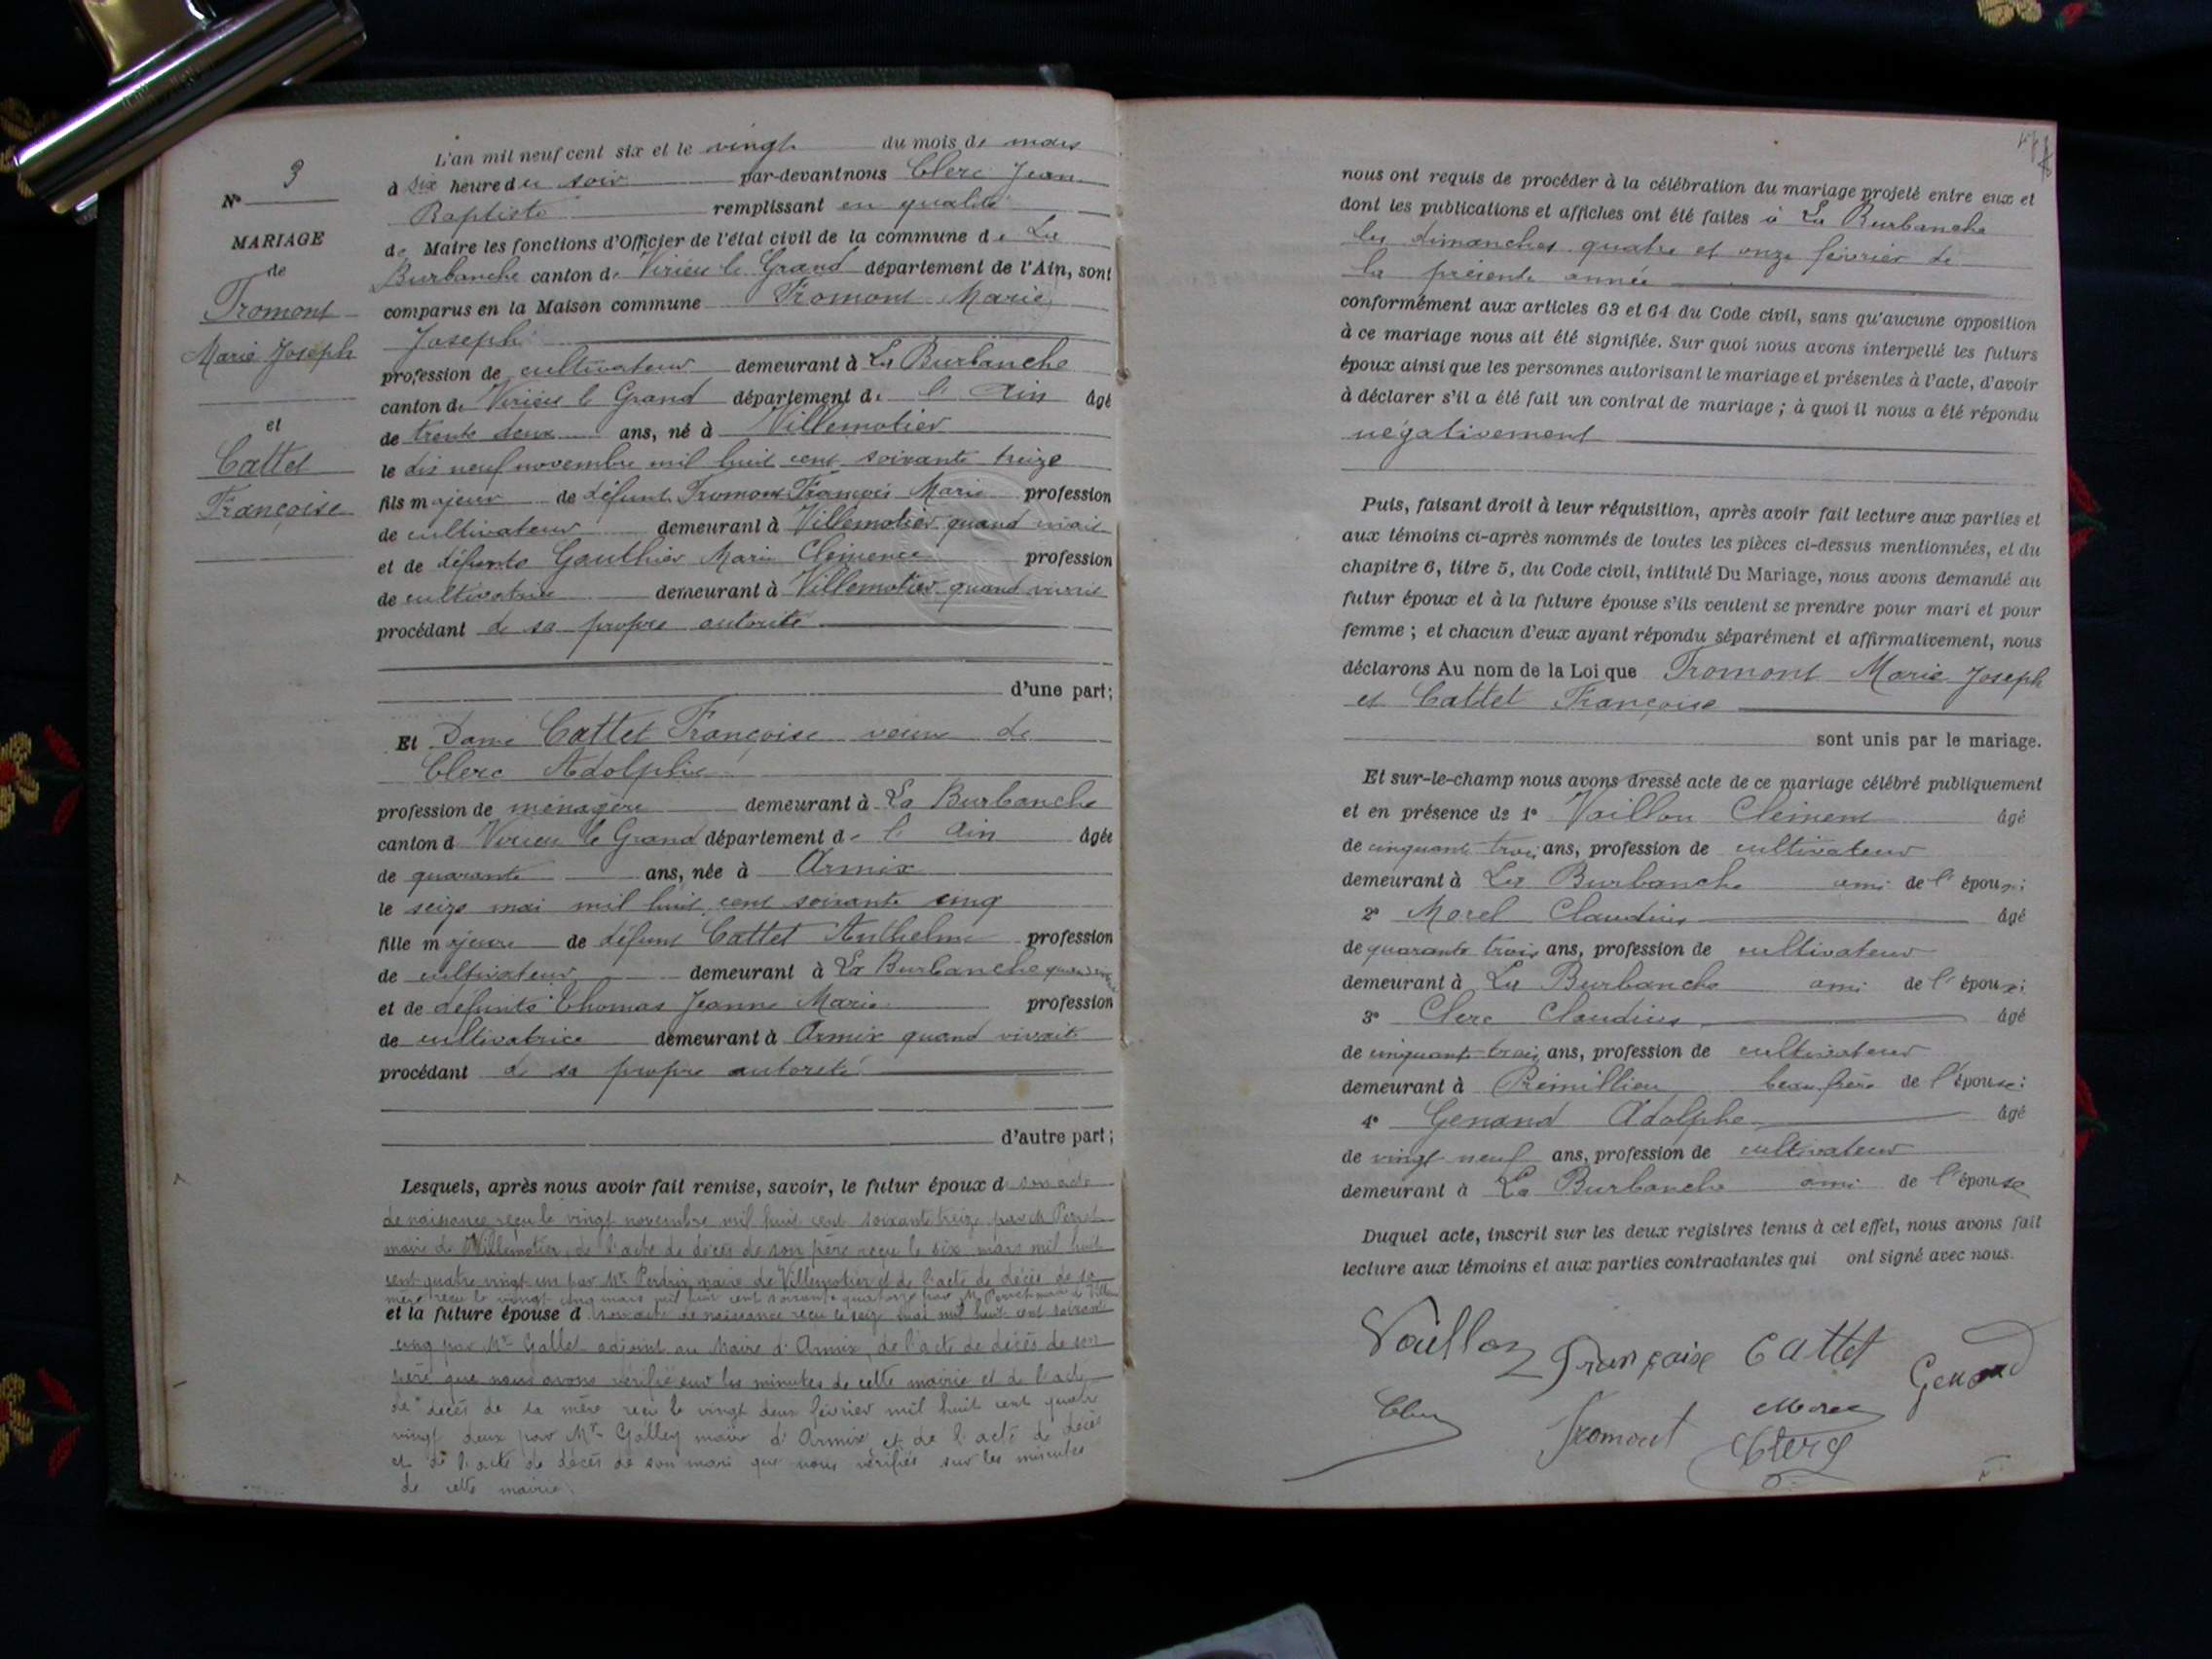 N° 3
MARIAGE
de
Fromont
Marie Joseph
et
Cattet
Françoise
L'an mil neuf cent six et le vingt du mois de mars
à six heure du soir par-devant nous Clerc Jean
Baptiste remplissant en qualité
de Maire les fonctions d'Officier de l'état civil de la commune de La
Burbanche canton de Virieu le Grand département de l'Ain, sont
comparus en la Maison commune Fromont Marie
Joseph
profession de cultivateur demeurant à La Burbanche
canton de Virieu le Grand département de l' Ain âgé
de trente deux ans, né à Villemotier
le dix neuf novembre mil huit cent soixante treize
fils majeur de défunt Fromont François Marie profession
de cultivateur demeurant à Villemotier quand vivait
et de défunte Gauthier Marie Clémence profession
de cultivatrice demeurant à Villemotier quand vivait
procédant de sa propre autorité
d'une part;
Et Dame Cattet Françoise veuve de
Clerc Adolphe
profession de ménagère demeurant à La Burbanche
canton d Virieu le Grand département de l' Ain âgée
de quarante ans, née à Armix
le seize mai mil huit cent soixante cinq
fille majeure de défunt Cattet Anthelme profession
de cultivateur demeurant à La Burbanche quand vivait
et de défunte Thomas Jeanne Marie profession
de cultivatrice demeurant à Armix quand vivait
procédant de sa propre autorité
d'autre part;
Lesquels, après nous avoir fait remise, savoir, le futur époux d son acte
de naissance reçu le vingt novembre mil huit cent soixante treize par M
maire de Villemotier, de l'acte de décès de son père reçu le six mars mil huit
cent quatre vingt un par Mr Perdrix maire de Villemotier et de l'acte de décès de sa
mère reçu le vingt cinq mars mil huit cent soixante quatorze par M
et la future épouse d son acte de naissance reçu le seize mai mil huit cent soixante
cinq par Mr Gallet adjoint au Maire d'Armix, de l'acte de décès de son
père que nous avons vérifié sur les minutes de cette mairie et de l'acte
de décès de sa mère reçu le vingt deux février mil huit cent quatre
vingt deux par Mr Galley maire d'Armix et de l'acte de décès
et de l'acte de décès de son mari que nous vérifiés sur les minutes
de cette mairie.
nous ont requis de procéder à la célébration du mariage projeté entre eux et
dont les publications et affiches ont été faites à La Burbanche
les dimanches quatre et onze février de
la présente année
conformément aux articles 63 et 64 du Code civil, sans qu'aucune opposition
à ce mariage nous ait été signifiée. Sur quoi nous avons interpellé les futurs
époux ainsi que les personnes autorisant le mariage et présentes à l'acte, d'avoir
à déclarer s'il a été fait un contrat de mariage; à quoi il nous a été répondu
négativement
Puis, faisant droit à leur réquisition, après avoir fait lecture aux parties et
aux témoins ci-après nommés de toutes les pièces ci-dessus mentionnées, et du
chapitre 6, titre 5, du Code civil, intitulé Du Mariage, nous avons demandé au
futur époux et à la future épouse s'ils veulent se prendre pour mari et pour
femme; et chacun d'eux ayant répondu séparément et affirmativement, nous
déclarons Au nom de la Loi que Fromont Marie Joseph
et Cattet Françoise
sont unis par le mariage.
Et sur-le-champ nous avons dressé acte de ce mariage célébré publiquement
et en présence de 1° Vaillon Clément âgé
de cinquante trois ans, profession de cultivateur
demeurant à La Burbanche ami de l' époux;
2° Morel Claudius âgé
de quarante trois ans, profession de cultivateur
demeurant à La Burbanche ami de l' époux;
3° Clerc Claudius âgé
de cinquante trois ans, profession de cultivateur
demeurant à Prémillieu beau frère de l'épouse;
4° Genand Adolphe âgé
de vingt neuf ans, profession de cultivateur
demeurant à La Burbanche ami de l'épouse
Duquel acte, inscrit sur les deux registres tenus à cet effet, nous avons fait
lecture aux témoins et aux parties contractantes qui ont signé avec nous.
Vaillon Françoise Cattet Genand
Clerc Fromont Morel
Clerc